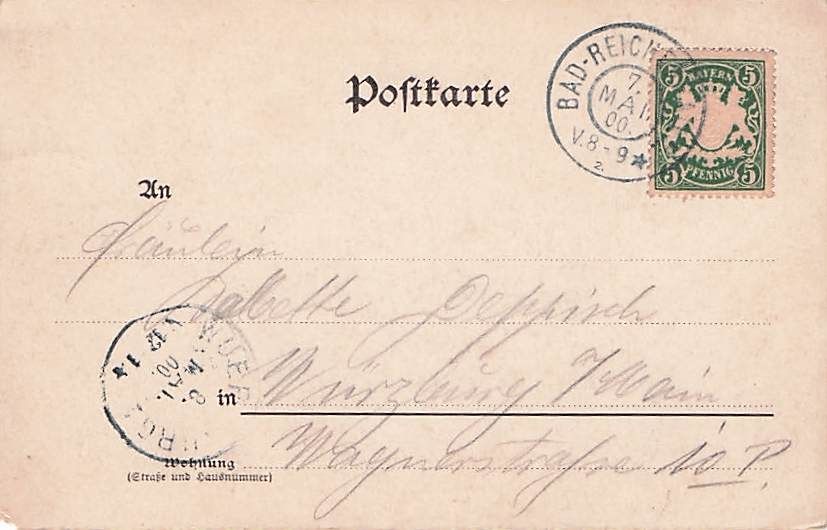 Postkarte
BAD-REICH
7.
MAI
00.
V.8-9
2
5 BAYERN 5
5 PFENNIG 5
An
Fräulein
Babette Deppisch
WUER
8 MAI
00
in Würzburg a/Main
Wohnung
(Straße und Hausnummer)
Wagnerstraße 10 P.